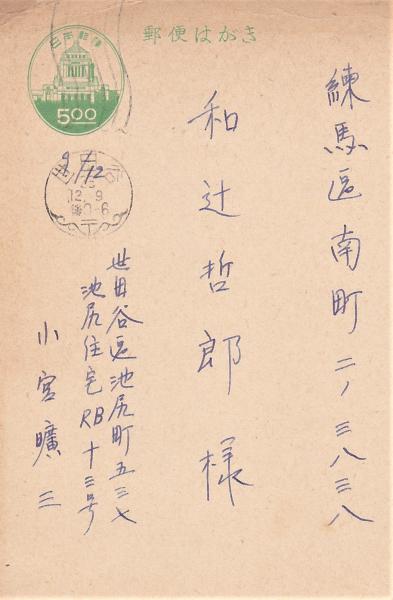 郵便はがき
日本郵便
5.00
練馬區南町二ノ三八三八
和辻哲郎様
12.9
后0-6
世田谷區池尻町五三七
池尻住宅RB十三号
小宮曠三